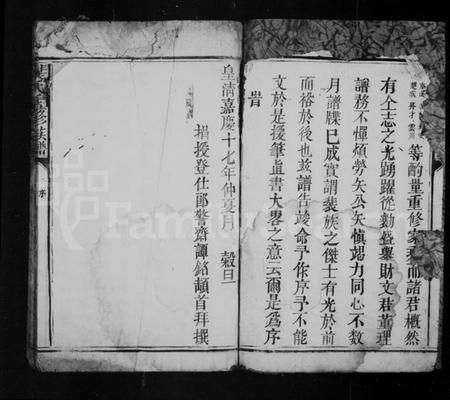 楚成 昇才 雲
等酌量重修家乘而諸君概然
有仝志之光踴躍從勷盛舉財文君董理
譜務不憚煩勞矢公矢慎竭力同心不数
月譜牒已成實謂裴族之傑士有光於前
而裕於後也玆譜告竣命予作序予不能
文於是援筆直書大畧之意云爾是爲序
旹
皇清嘉慶十七年仲夏月 穀旦
塲授登仕郎警齋譚銘頓首拜撰
修族譜
序
FamilySearch